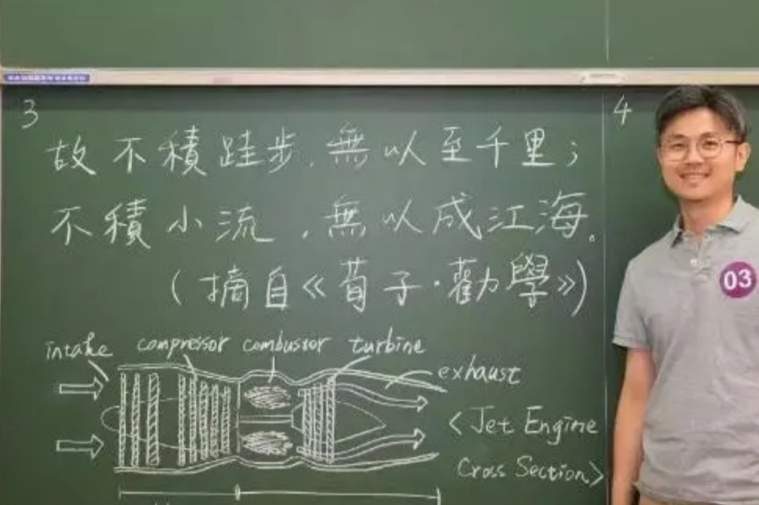 3
故不積跬步，無以至千里；
不積小流，無以成江海。
（摘自《荀子·勸學》）
4
03
intake compressor combustor turbine
exhaust
<Jet Engine
Cross Section>